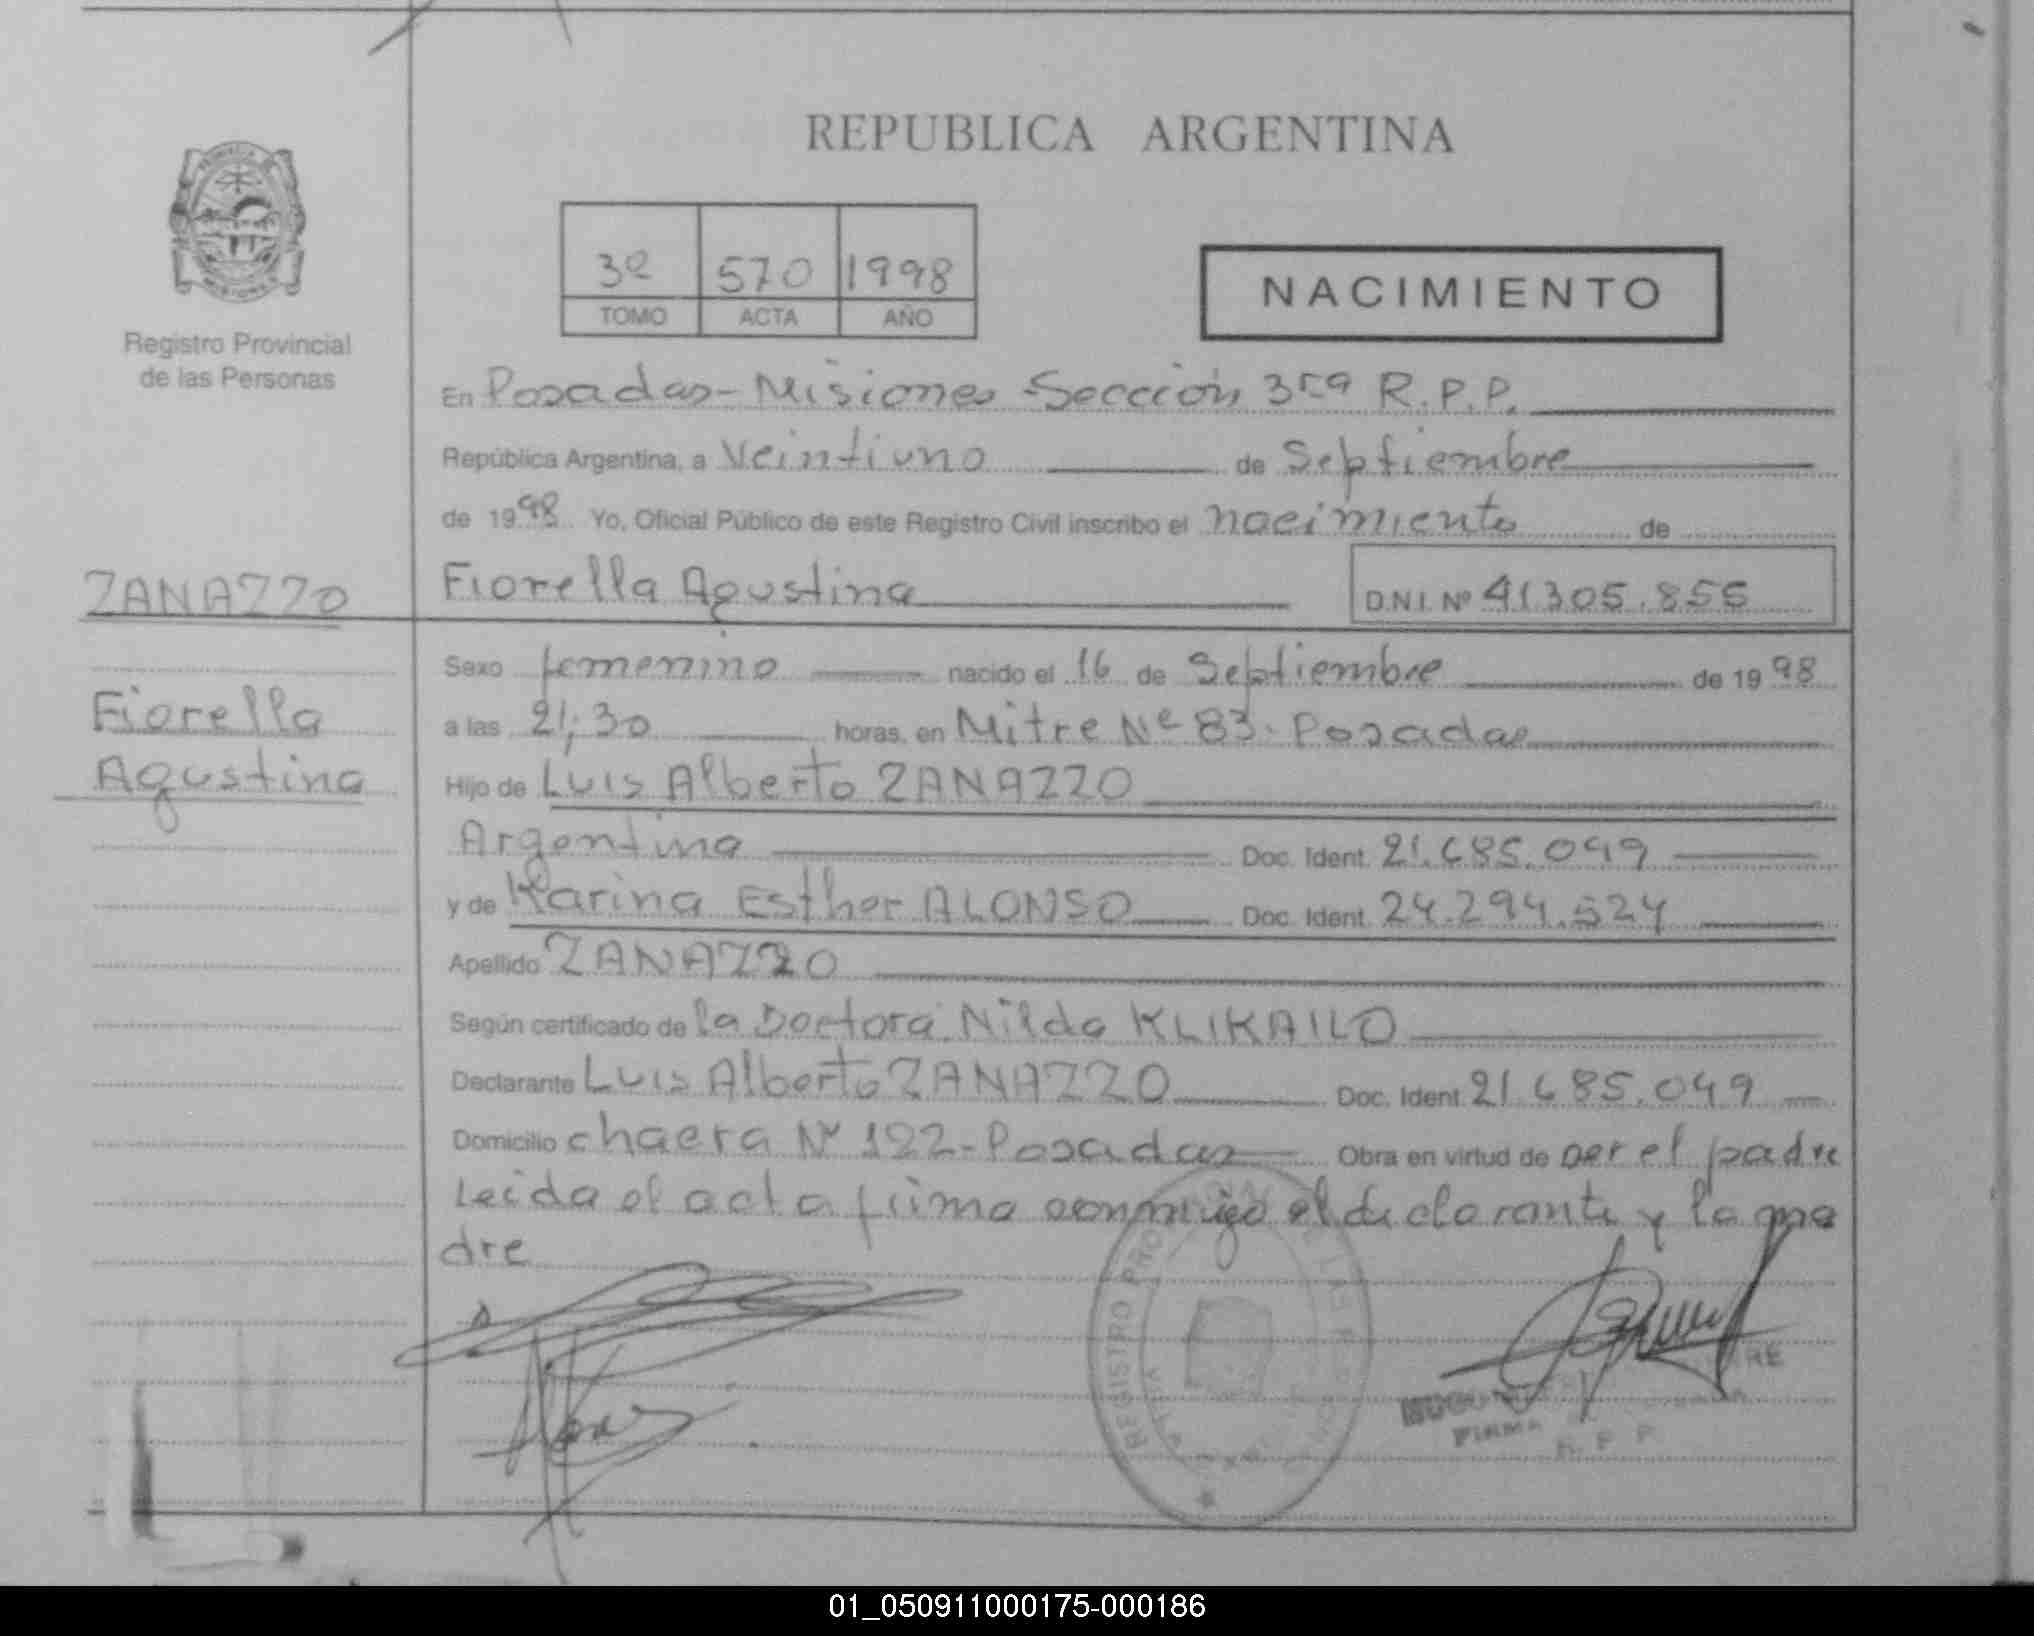 REPUBLICA ARGENTINA
3º 570 1998
TOMO ACTA AÑO
NACIMIENTO
Registro Provincial
de las Personas
En Posadas-Misiones-Sección 3ra R.P.P.
República Argentina, a Veintiuno de Septiembre
de 1998 Yo, Oficial Público de este Registro Civil inscribo el nacimiento de
ZANAZZO
Fiorella Agustina
D.N.I. Nº 41.305.855
Sexo femenino nacido el 16 de Septiembre de 1998
Fiorella
Agustina
a las 21;30 horas, en Mitre Nº 83. Posadas
Hijo de Luis Alberto ZANAZZO
Argentina Doc. Ident. 21.685.049
y de Karina Esther ALONSO Doc. Ident. 24.294.524
Apellido ZANAZZO
Según certificado de la Doctora Nilda KLIKAILO
Declarante Luis Alberto ZANAZZO Doc. Ident. 21.685.049
Domicilio chacra Nº 122-Posadas Obra en virtud de ser el padre
Leida el acta firma conmigo el declarante y la ma
dre
REGISTRO
FIRMA
R. P. P.
01_050911000175-000186